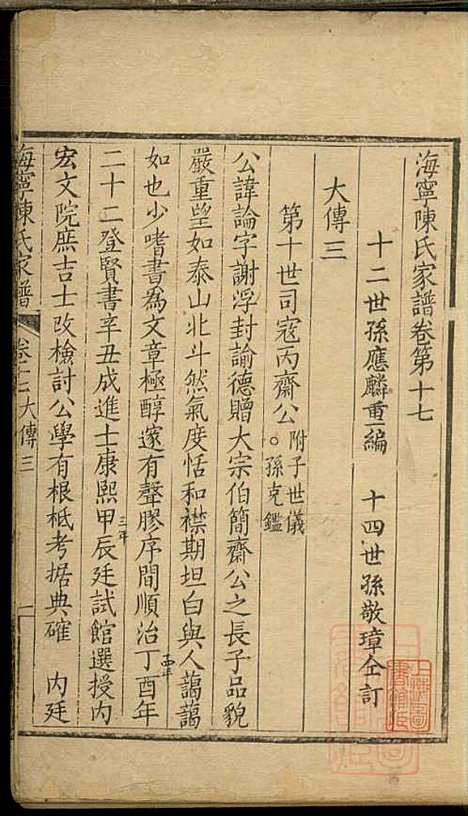 海寧陳氏家譜卷第十七
十二世孫應麟重編 十四世孫敬璋仝訂
大傳三
第十世司寇丙齋公 附子世儀 ○孫克鑑
公諱論字謝浮封諭德贈大宗伯簡齋公之長子品貌
嚴重望如泰山北斗然氣度恬和襟期坦白與人藹藹
如也少嗜書為文章極醇邃有聲膠序間順治丁酉年
二十二登賢書辛丑成進士康熙甲辰三年廷試館選授內
宏文院庶吉士改檢討公學有根柢考據典確 內廷
海寧陳氏家譜 卷十七大傳三 一